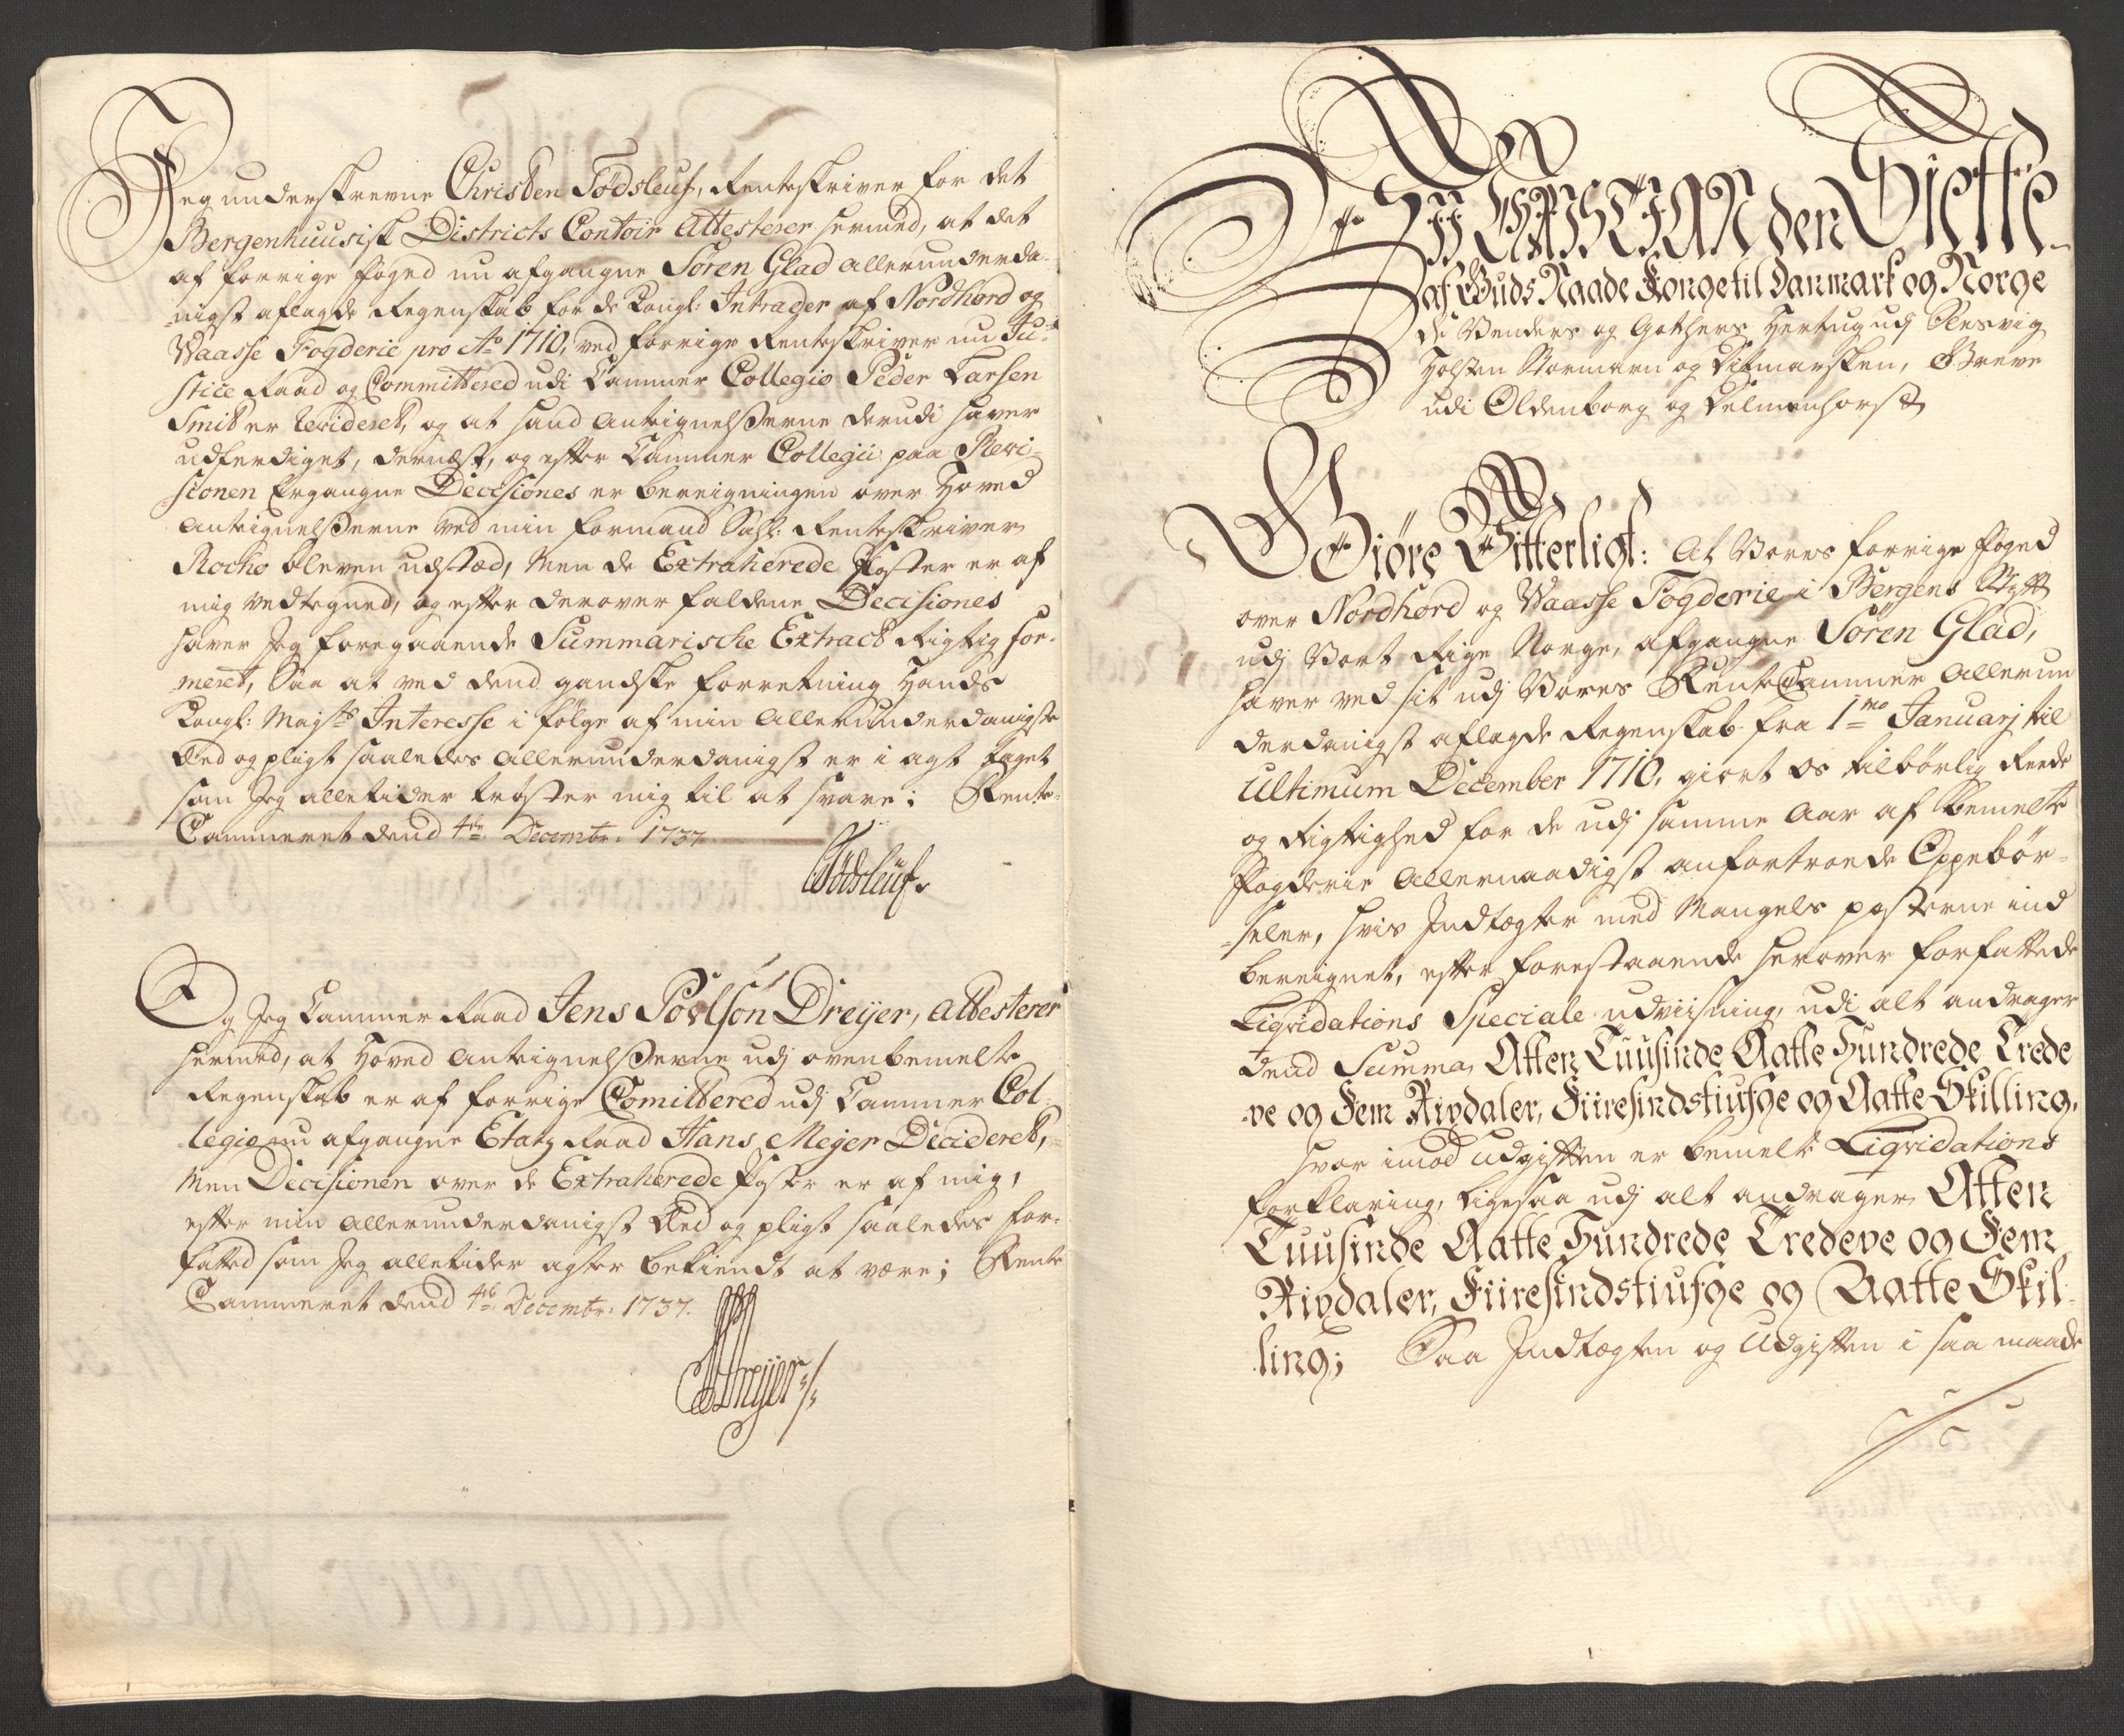 Jeg underskrevne Christen Födsleuf, Renteskriver for det
Bergenhuusisk Districts Contoir Attesterer hermed, at det
af forrige foged nu afgangne Sören Glad allerunderda-
nigst aflagde Regenskab for de Kongl: Intrader af Nordhord og
Waasse Fogderie pro Ao 1710, ved forrige Renteskriver nu Ju-
stice Raad og Committered udi Cammer Collegio Peder Larsen
Smit er Revideret, og at hand Antegnelsserne derudi haver
udferdiget, dernæst, og efter Cammer Collegii paa Revi-
sionen Ergangne Decisiones er bereigningen over Hoved
Antegnelsserne ved min formand Sahl: Renteskriver
Rocho bleven udstæd, Men de Extraherede Poster er af
mig vedtegned, og efter derover faldene Decisiones
haver Jeg foregaaende Summarische Extract Rigtig for-
meret, Saa at ved dend gandske forretning Hands
Kongl: Mayts Interesse i følge af min allerunderdanigste
Eed og pligt saaledes allerunderdanigst er i agt taget
som Jeg alletider trøster mig til at svare; Rente-
Cammeret dend 4de Decembr: 1737.
Födsleuf.
Og Jeg Cammer Raad Jens Povlsön Dreyer, attesterer
hermed, at Hoved Antegnelsserne udj ovenbemelte
Regenskab er af forrige Comittered udj Cammer Col-
legio nu afgangne Etatz Raad Hans Meyer Decideret,
Men Decisionen over de Extraherede Poster er af mig,
efter min allerunderdanigst Eed og pligt saaledes for-
fatted som Jeg alletider agter bekiendt at være; Rente
Cammeret dend 4de Decembr: 1737.
Dreyer
Wii CHRISTIAN den Siette
af Guds Naade Konge til Danmark og Norge
de Venders og Gothers Hertug udj Slesvig
Holsten Stormarn og Ditmarsken, Greve
udi Oldenborg og Delmenhorst
Giöre Vitterligt: At Vores forrige foged
over Nordhord og Waasse Fogderie i Bergens Stift
udj Vort Rige Norge, afgangne Sören Glad,
haver ved sit udj Vores Rente Cammer Allerun
derdanigst aflagde Regenskab fra 1mo Januarj til
Ultimum December 1710, giort os tilbørlig Reede
og Rigtighed for de udj samme Aar af bemelte
Fogderie allernaadigst anfortroede Oppebör-
seler, hvis Indtægter med Mangels posterne ind
bereignet, efter forestaaende herover forfattede
Liqvidations Speciale udviisning, udi alt andrager
dend Summa, Atten Tuusinde Aatte Hundrede Trede
ve og Fem Rixdaler, Fiiresindstiufge og Aatte Skilling,
hvor imod Udgiften er bemelte Liqvidations
forklaring, ligesaa udj alt andrager Atten
Tuusinde Aatte Hundrede Tredeve og Fem
Rixdaler, Fiiresindstiufge og Aatte Skil-
ling; Saa Indtægten og Udgiften i saa maade